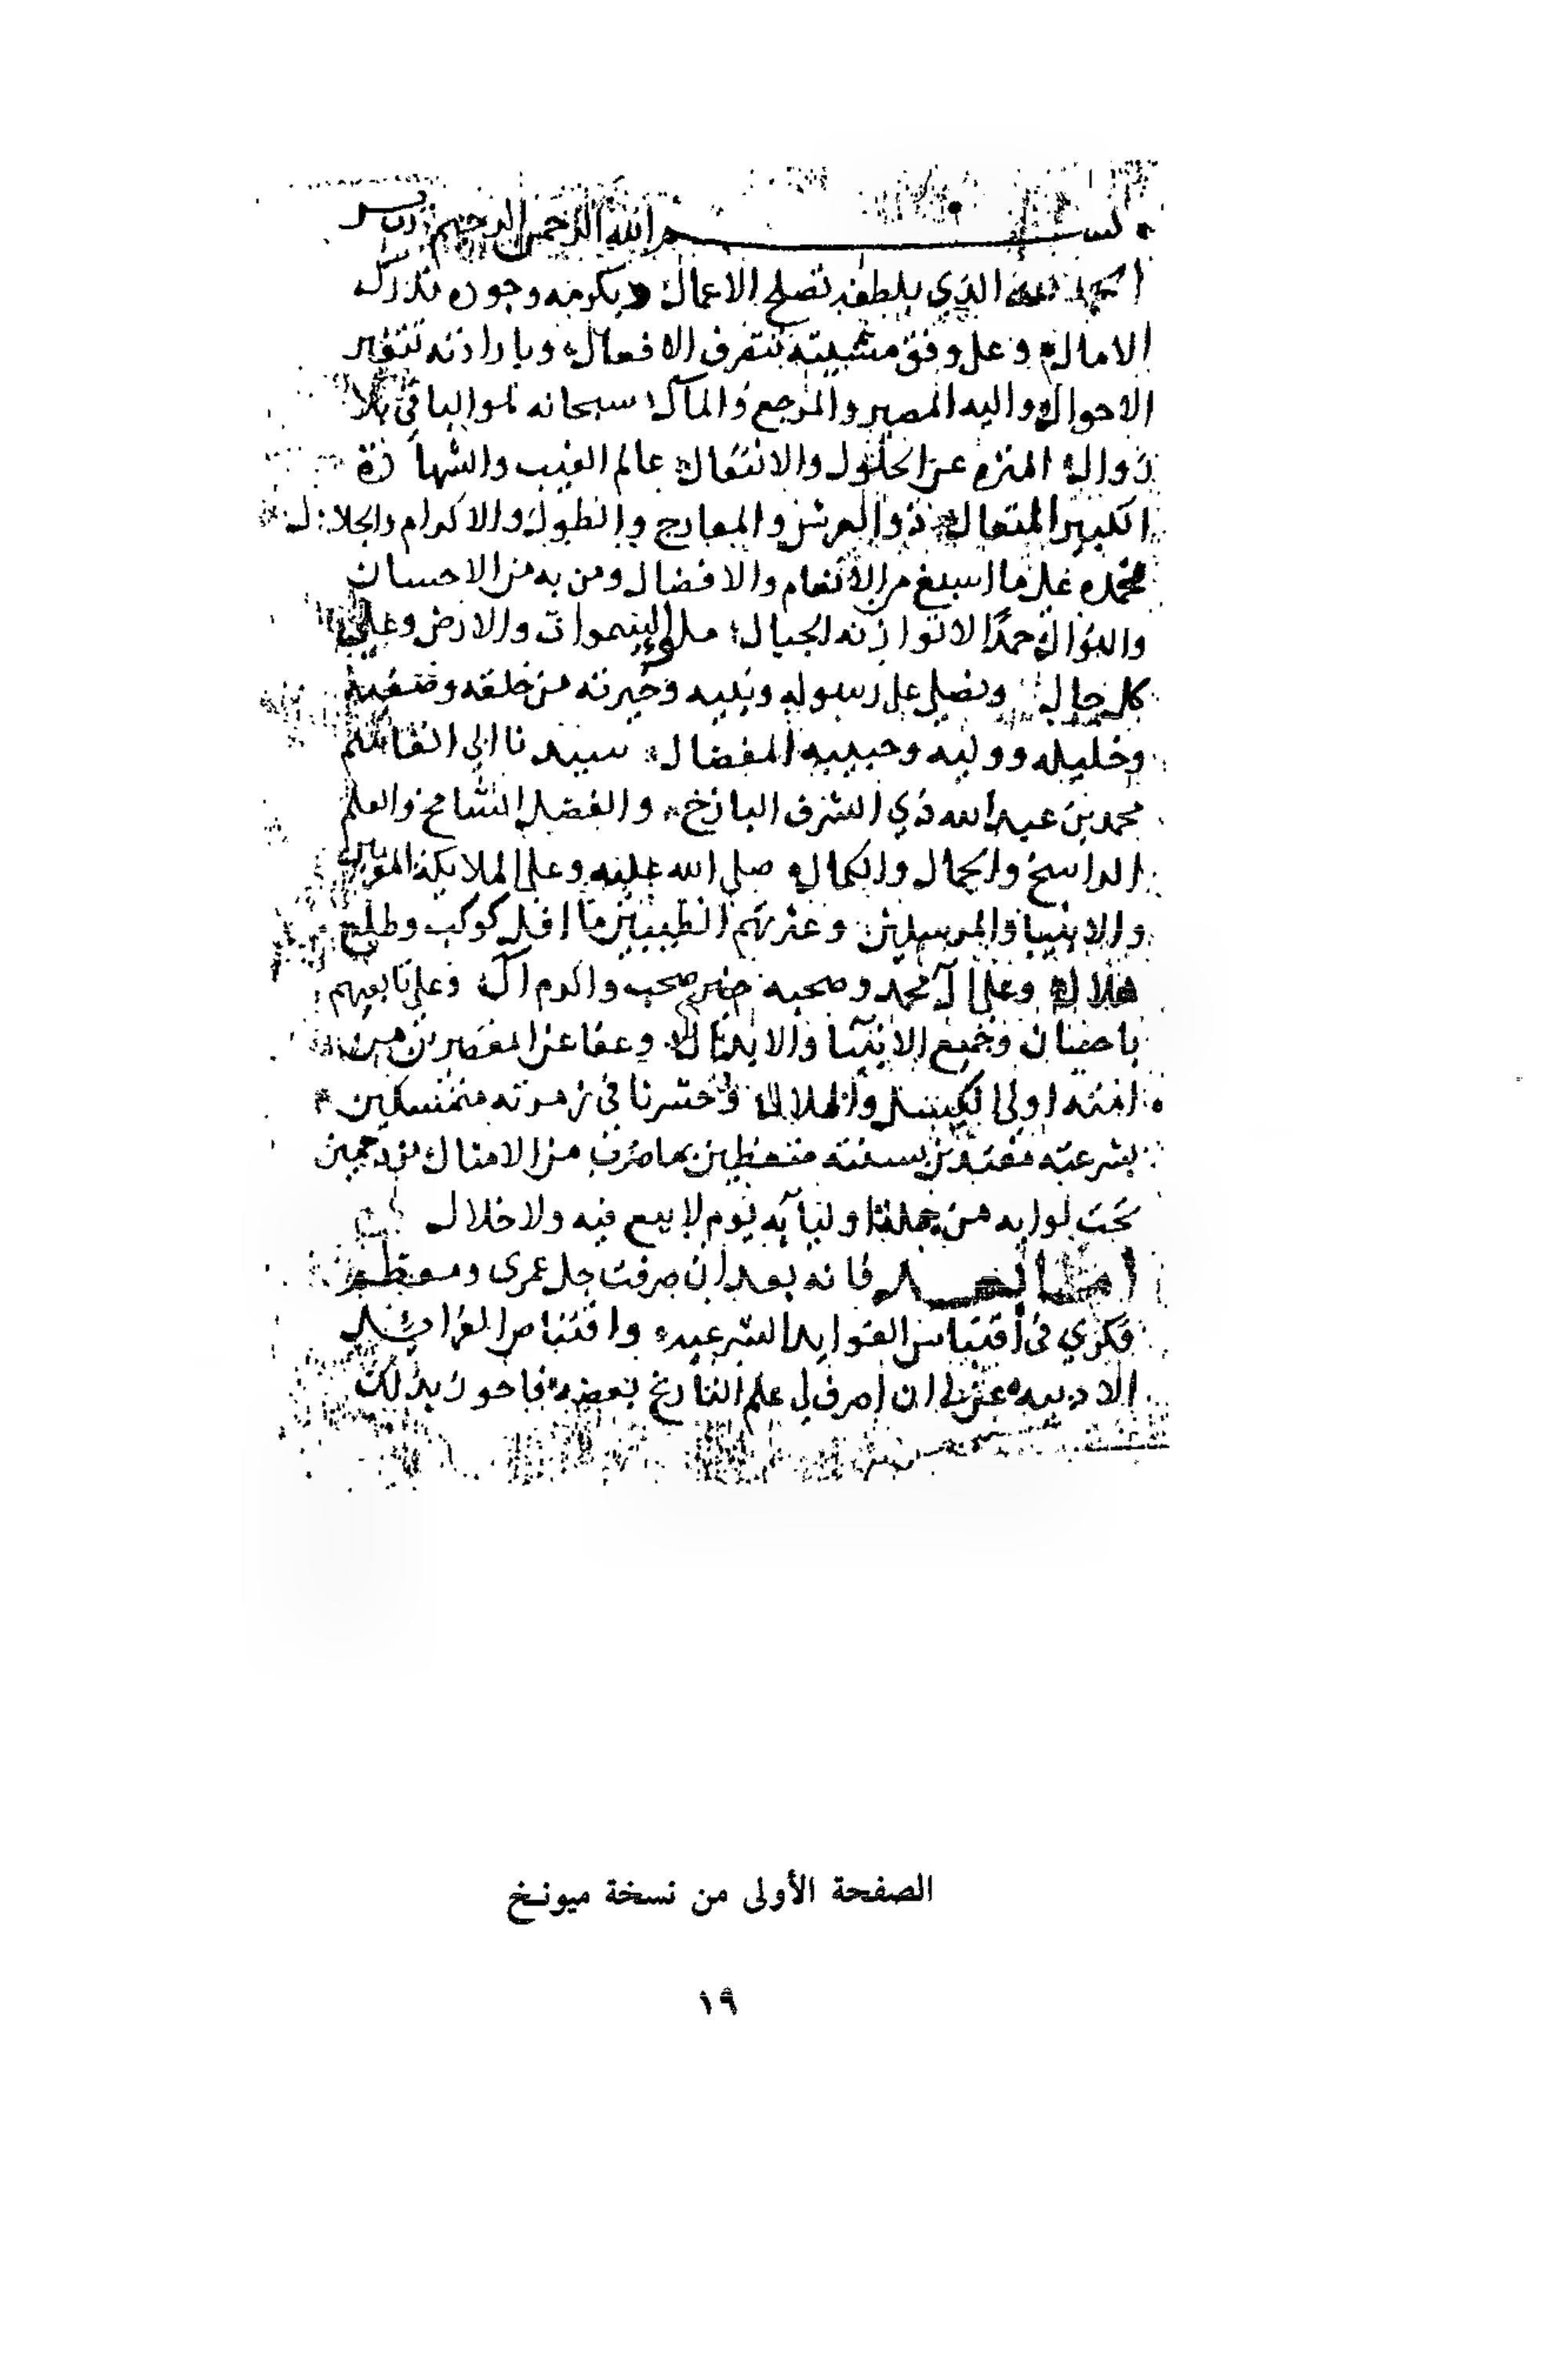 بســـــــــم الله الرحمن الرحيم رب يسر
الحمد لله الذي بلطفه تصلح الاعمال وبكرمه وجوده تدرك
الامال وعلى وفق مشيته تتصرف الافعال وبارادته تتغير
الاحوال واليه المصير والمرجع والمآل سبحانه هو الباقي بلا
زوال المنزه عن الحلول والانتقال عالم الغيب والشهادة
الكبير المتعال ذو العرش والمعارج والطول والاكرام والجلال
نحمده على ما اسبغ من الانعام والافضال ومن به من الاحسان
والنوال حمدًا لا توازنه الجبال ملء السموات والارض وعلى
كل حال ونصلي على رسوله ونبيه وخيرته من خلقه وصفيه
وخليله ووليه وحبيبه المفضال سيدنا ابي القاسم
محمد بن عبد الله ذي الشرف الباذخ والفضل الشامخ والعلم
الراسخ والجمال والكمال صلى الله عليه وعلى الملايكة المقربين
والانبيا والمرسلين وعترتهم الطيبين ما افل كوكب وطلع
هلال وعلى آل محمد وصحبه خير صحب واكرم آل وعلى تابعيهم
باحسان وجميع الاوليآ والابدال وعفا عن المقصرين من
امته اولي الكسل والملال وحشرنا في زمرته متمسكين
بشرعته مقتدين بسنته متعظين بما ضرب من الامثال مزدحمين
تحت لوايه من جملة اوليآيه يوم لا بيع فيه ولا خلال
امـا بعـــد فانه بعد ان صرفت جل عمري ومعظم
فكري في اقتباس الفوايد الشرعيه واقتناص الفرائد
الادبيه عن لي ان اصرف لي علم التاريخ بعضه فاحوز بذلك
الصفحة الأولى من نسخة ميونخ
١٩